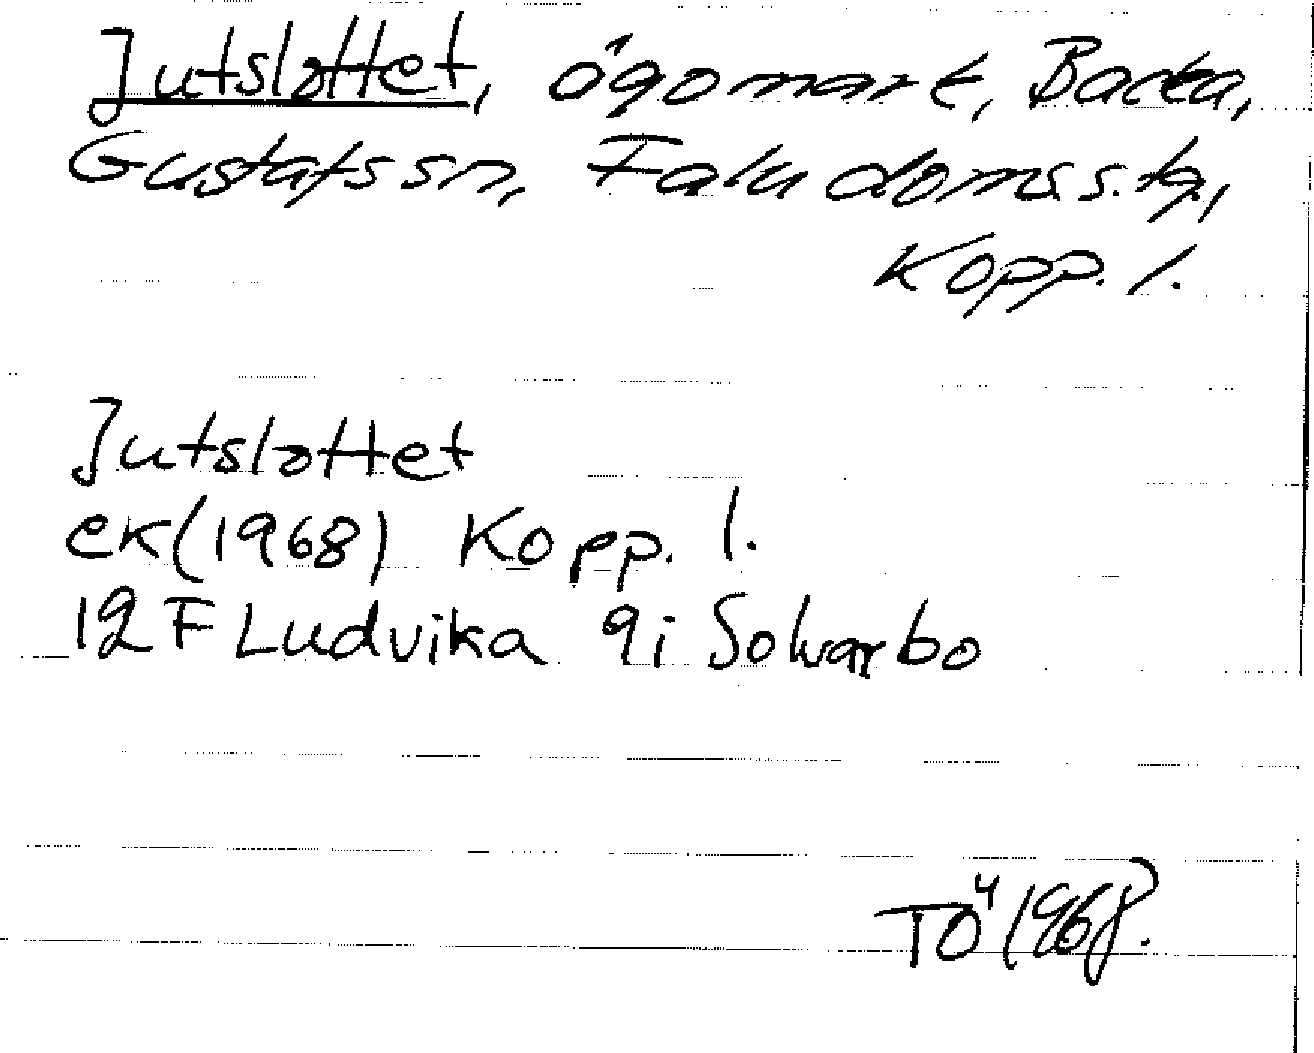 Jutslottet, ägomark, Backa,
Gustafs sn, Falu doms.s. tg.,
Kopp. l.
Jutslottet
ek(1968) Kopp. l.
12F Ludvika 9i Solvarbo
TÖ 1968.